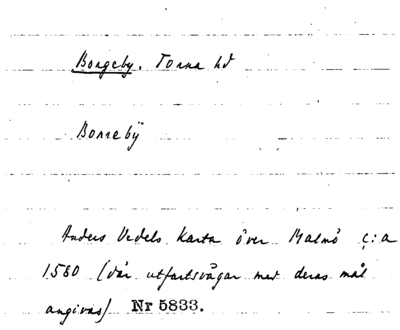 Borgeby. Torna hd
Borrebÿ
Anders Vedels Karta över Malmö c:a
1580 (där utfartsvägar med deras mål
angivas) Nr 5833.